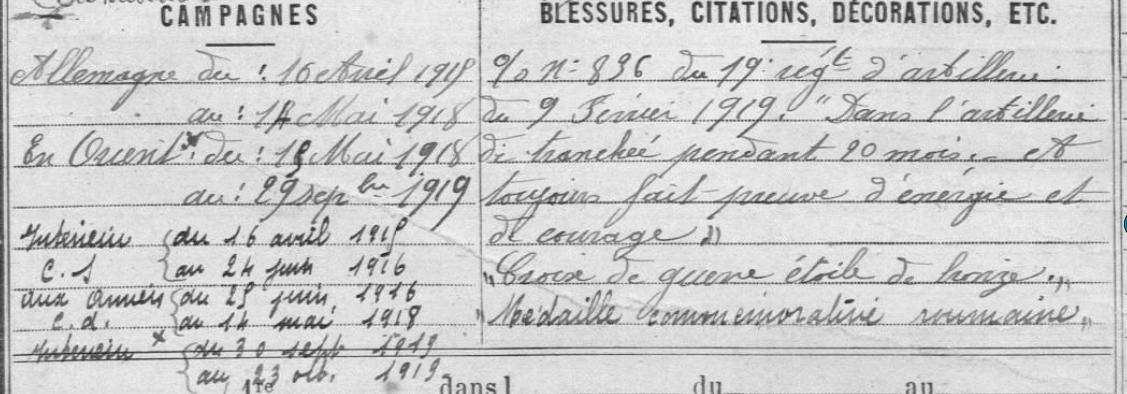 CAMPAGNES
Allemagne du : 16 Avril 1915
au : 14 Mai 1918
En Orient : du : 15 Mai 1918
au : 29 sepbre 1919
Intérieur du 16 avril 1915
C.S au 24 juin 1916
aux armées du 25 juin 1916
C.d. au 14 mai 1918
Intérieur x du 30 sept 1919
au 23 1919
BLESSURES, CITATIONS, DÉCORATIONS, ETC.
o/o n: 896 du 19: régt d'artillerie
du 9 Février 1919. "Dans l'artillerie
de tranchée pendant 20 mois. A
toujours fait preuve d'énergie et
de courage"
"Croix de guerre étoile de bronze."
"Médaille commémorative roumaine"
1re dans l du au